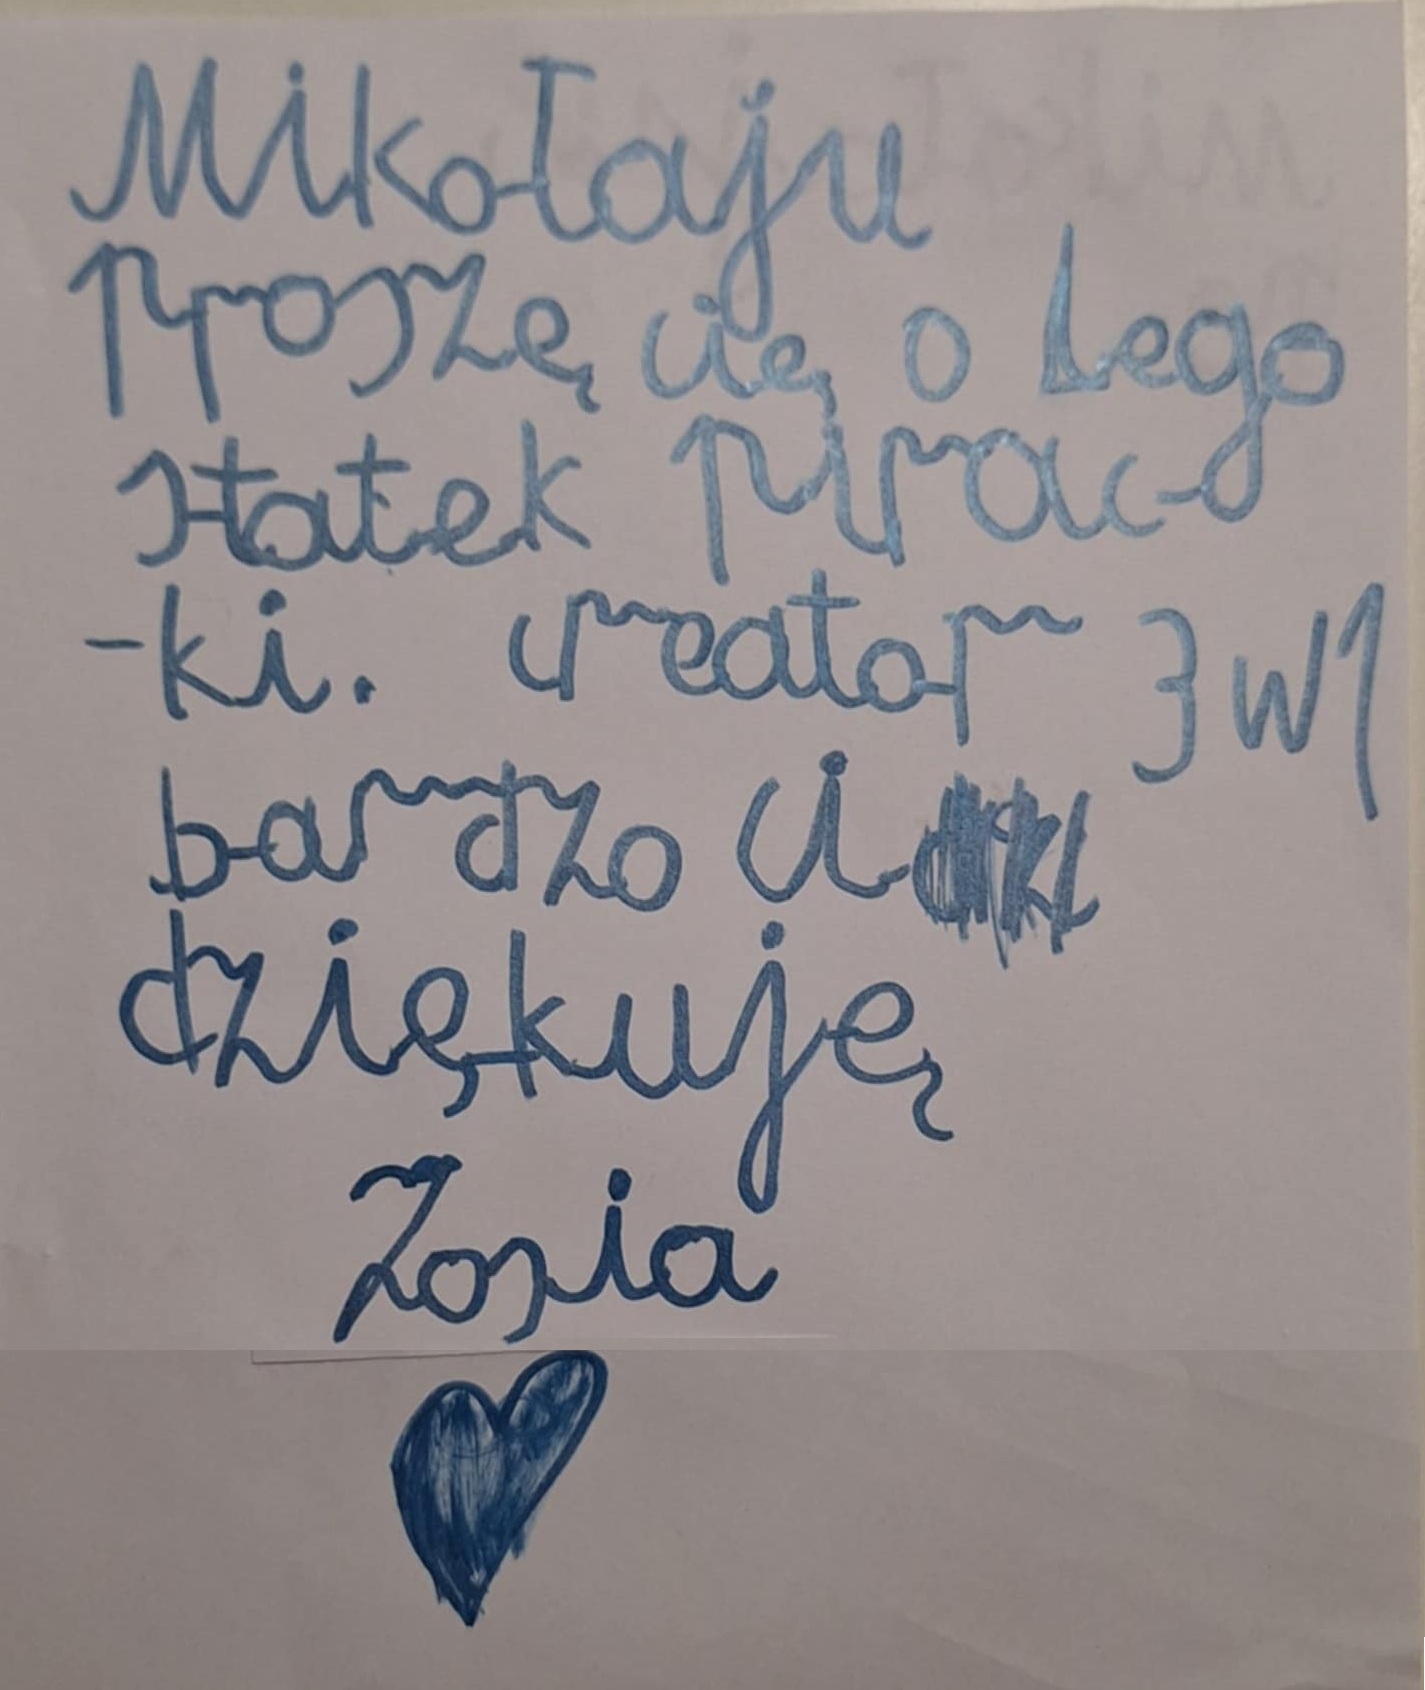 Mikołaju
proszę cię o Lego
statek pirac-
-ki. creator 3w1
bardzo ci
dziękuję
Zosia